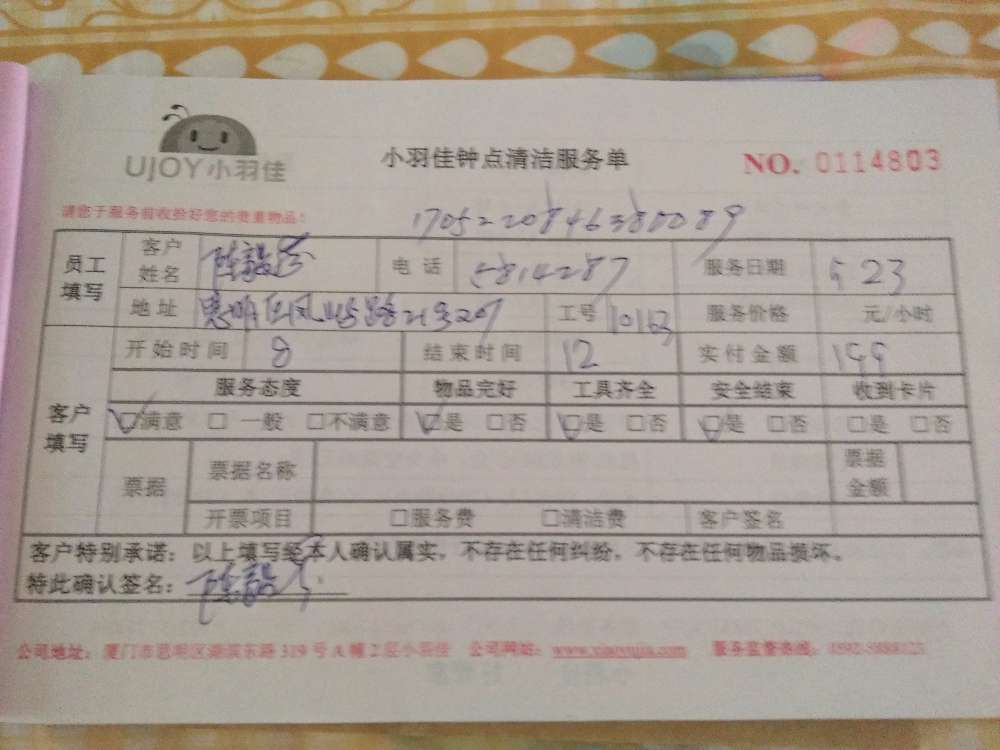 UJOY小羽佳
小羽佳钟点清洁服务单
NO. 0114803
请您于服务前收捡好您的贵重物品！
1705220846380089
员工填写 客户姓名 陈 电话 5814287 服务日期 5 23
地址 思明区凤 路21号207 工号 10163 服务价格 元/小时
客户填写 开始时间 8 结束时间 12 实付金额 199
服务态度 物品完好 工具齐全 安全结束 收到卡片
☑满意 □一般 □不满意 ☑是 □否 ☑是 □否 ☑是 □否 □是 □否
票据 票据名称 票据金额
开票项目 □服务费 □清洁费 客户签名
客户特别承诺：以上填写经本人确认属实，不存在任何纠纷，不存在任何物品损坏。
特此确认签名：陈
公司地址：厦门市思明区湖滨东路319号A幢2层小羽佳 公司网站：www.xiaoyujia.com 服务监督热线：